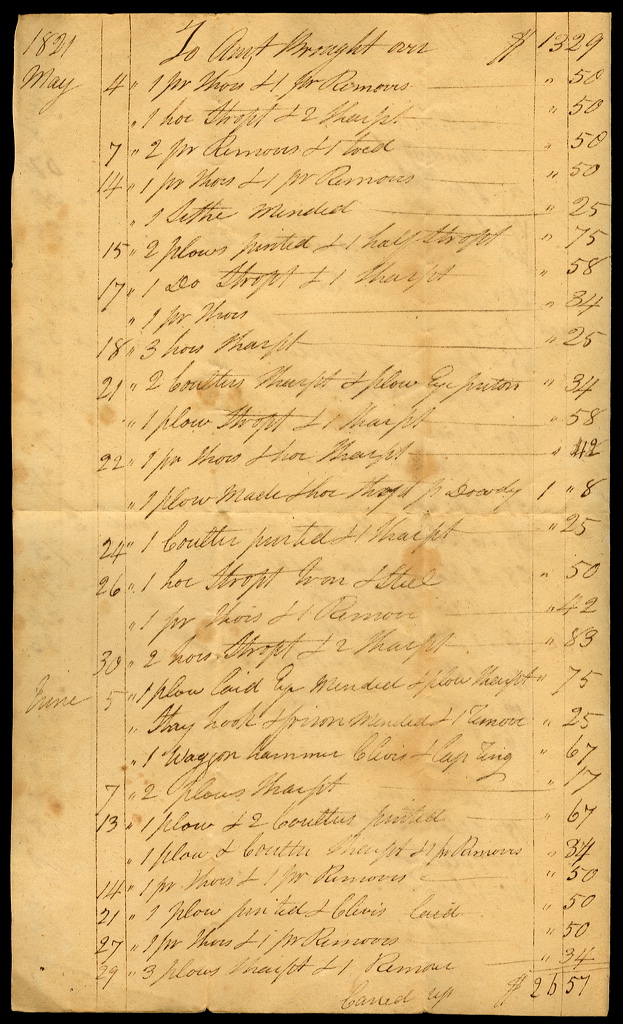 1821 To Amt Brought over $ 13 29
May 4 " 1 pr Shois & 1 pr Removis " 50
" 1 hoe Stropt & 2 Sharpt " 50
7 " 2 pr Removis & 1 toed " 50
14 " 1 pr Shois & 1 pr Removis " 50
" 1 Sithe Mended " 25
15 " 2 plows pinted & 1 half Stropt " 75
17 " 1 Do Stropt & 1 Sharpt " 58
" 1 pr Shois " 34
18 " 3 hois Sharpt " 25
21 " 2 Coulters Sharpt & plow Eye puton " 34
" 1 plow Stropt & 1 Sharpt " 58
22 " 1 pr Shois & hoe Sharpt " 42
" 1 plow Made & hoe p Dowdy 1 " 8
24 " 1 Coulter pinted & 1 Sharpt " 25
26 " 1 hoe Stropt Iron & Steel " 50
" 1 pr Shois & 1 Remove " 42
30 " 2 hois Stropt & 2 Sharpt " 83
June 5 " 1 plow laid Eye Mended & plow Sharpt " 75
" Stay hook & prison Mended & 1 Remove " 25
" 1 Waggon hammer Clivis & Cap Ring " 67
7 " 2 plows Sharpt " 17
13 " 1 plow & 2 Coulters pinted " 67
" 1 plow & Coulter Sharpt & 1 pr Removis " 34
14 " 1 pr Shois & 1 pr Removis " 50
21 " 1 plow pinted & Clivis laid " 50
27 " 1 pr Shois & 1 pr Removis " 50
29 " 3 plows Sharpt & 1 Remove " 34
Carred up $ 26 57